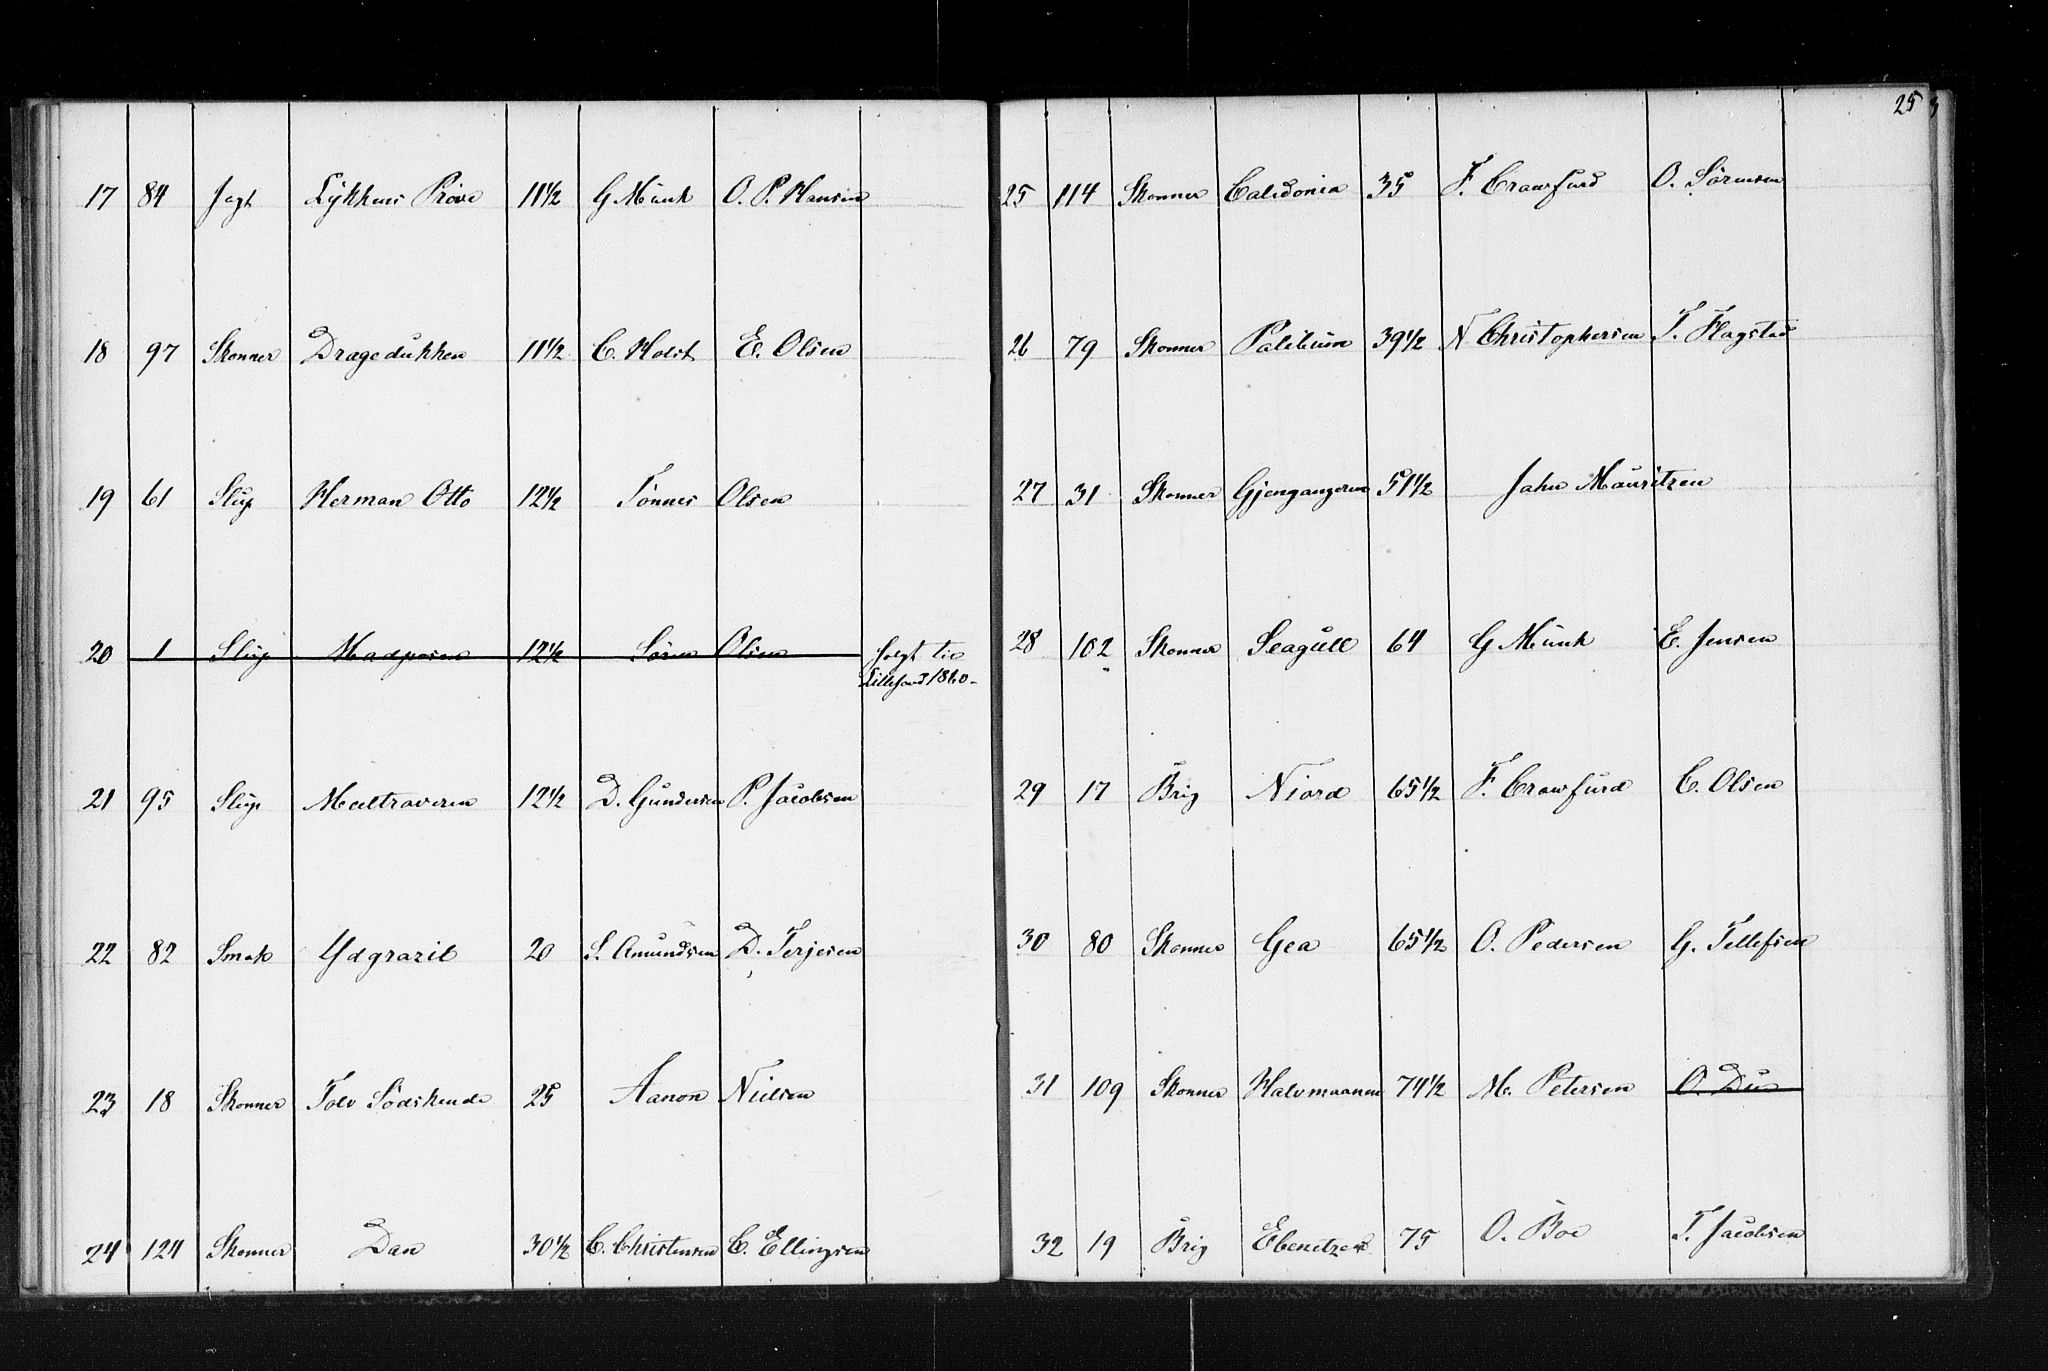 17 84 Jagt Lykkens Pröve 11½ G Münk O. P. Hansen
18 97 Skonner Dragedukken 11½ C. Holst E. Olsen
19 61 Slup Herman Otto 12½ Tönnes Olsen
20 1 Slup Madposen 12½ Sören Olsen solgt til
Lillesand 1860-
21 95 Slup Multraveren 12½ D. Gundersen P. Jacobsen
22 82 Smak Ydgrazil 20 S. Amundsen D. Terjesen
23 18 Skonner Tolv Södskende 25 Aanon Nielsen
24 124 Skonner Dan 30½ C. Christensen C. Ellingsen
25
25 114 Skonner Caledonia 35 F. Crawfurd O. Sörensen
26 79 Skonner 39½ N Christophersen T. Flagstad
27 31 Skonner Gjengangeren 51½ Jahn Mauritzen
28 102 Skonner Seagull 64 G Münk E. Jensen
29 17 Brig Niord 65½ F. Crawfurd C. Olsen
30 80 Skonner Gea 65½ O. Pedersen G. Tellefsen
31 109 Skonner Halvmaanen 74½ M. Petersen O. Due
32 19 Brig Ebenetzer 75 O. Boe T. Jacobsen